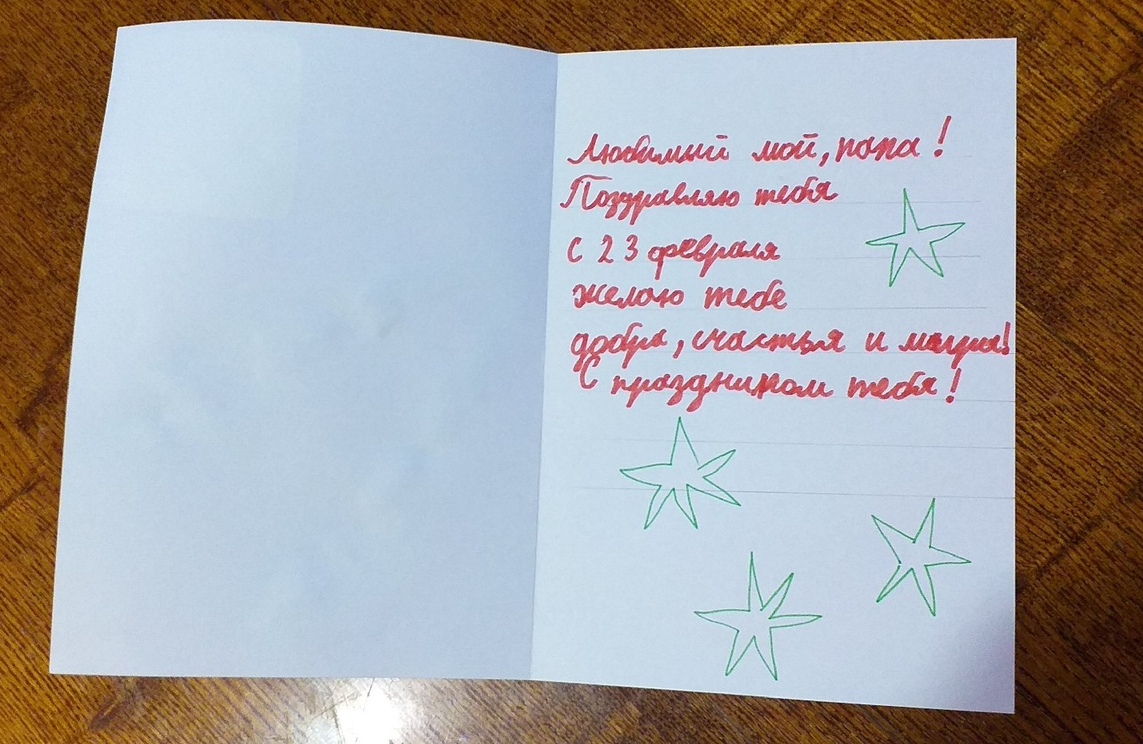 Любимый мой, папа!
Поздравляю тебя
с 23 февраля
желаю тебе
добра, счастья и мира!
С праздником тебя!